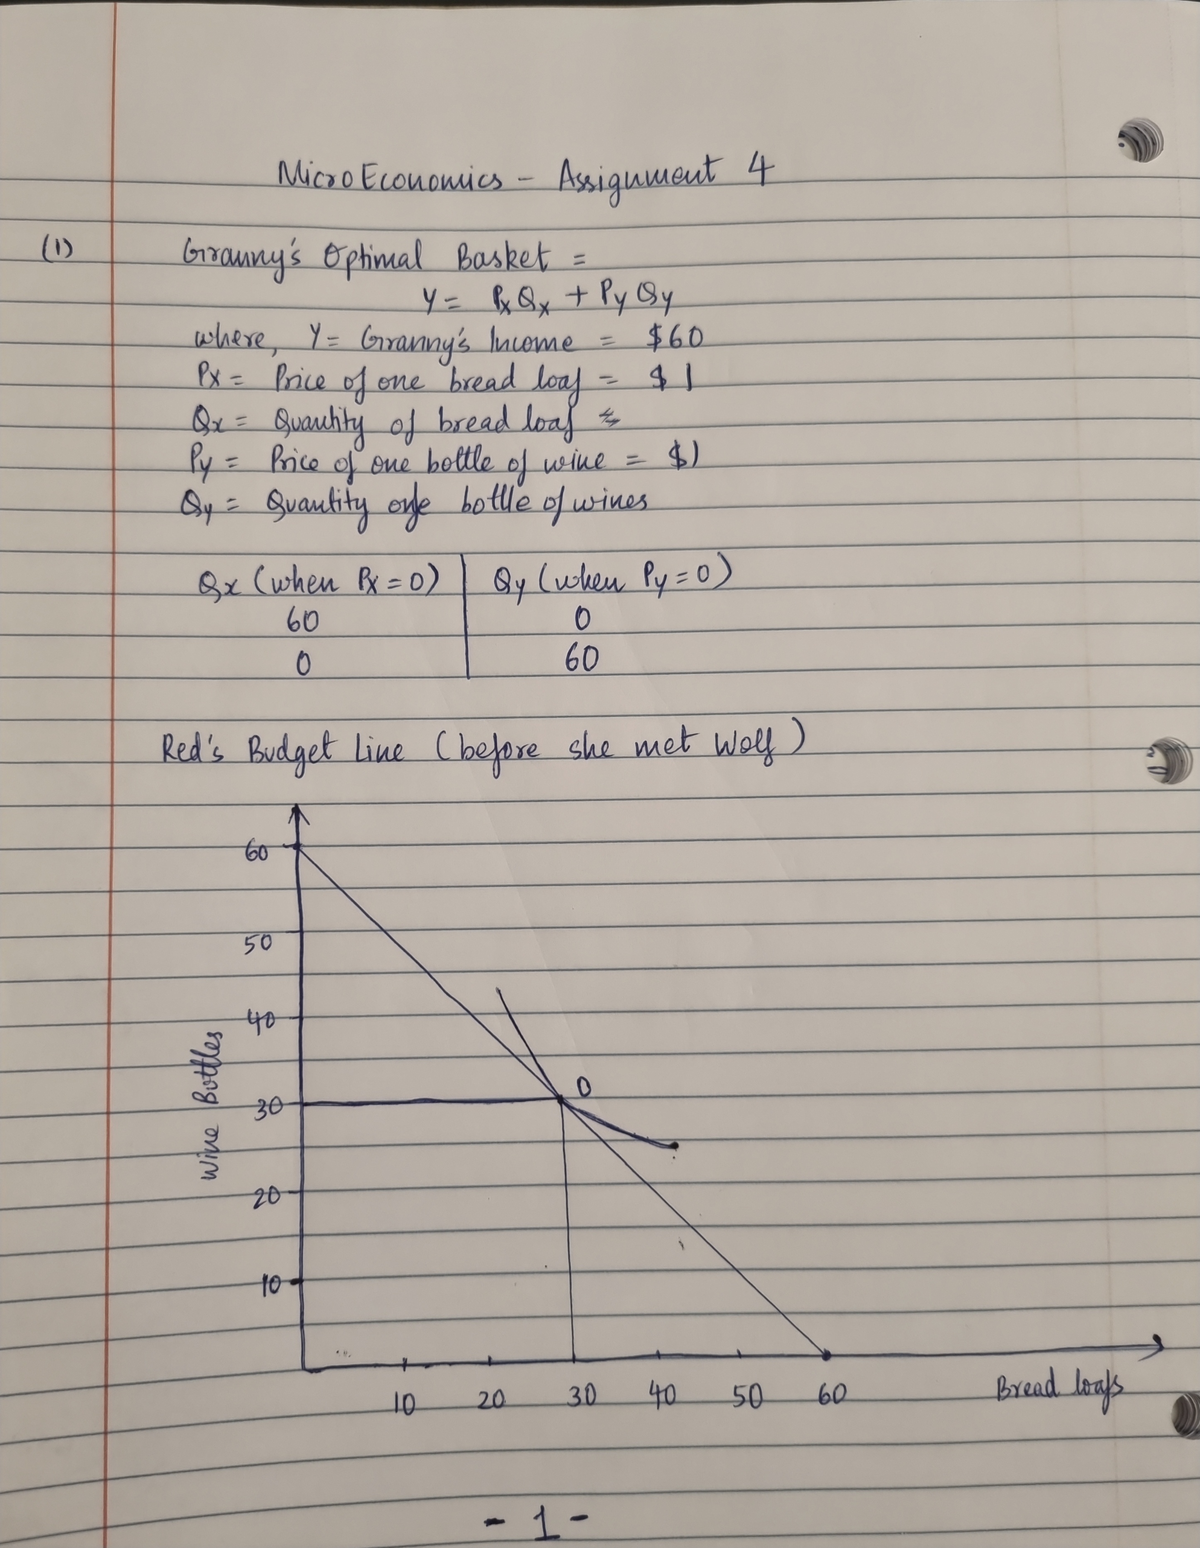 MicroEconomics - Assignment 4
(1) Granny's Optimal Basket =
Y = PxQx + PyQy
where, Y = Granny's Income = $60
Px = Price of one bread loaf = $1
Qx = Quantity of bread loaf
Py = Price of one bottle of wine = $1
Qy = Quantity bottle of wines
Qx (when Px = 0) Qy (when Py = 0)
60 0
0 60
Red's Budget Line (before she met Wolf)
60
50
40
30
20
10
Wine Bottles
O
10 20 30 40 50 60
Bread loafs
- 1 -